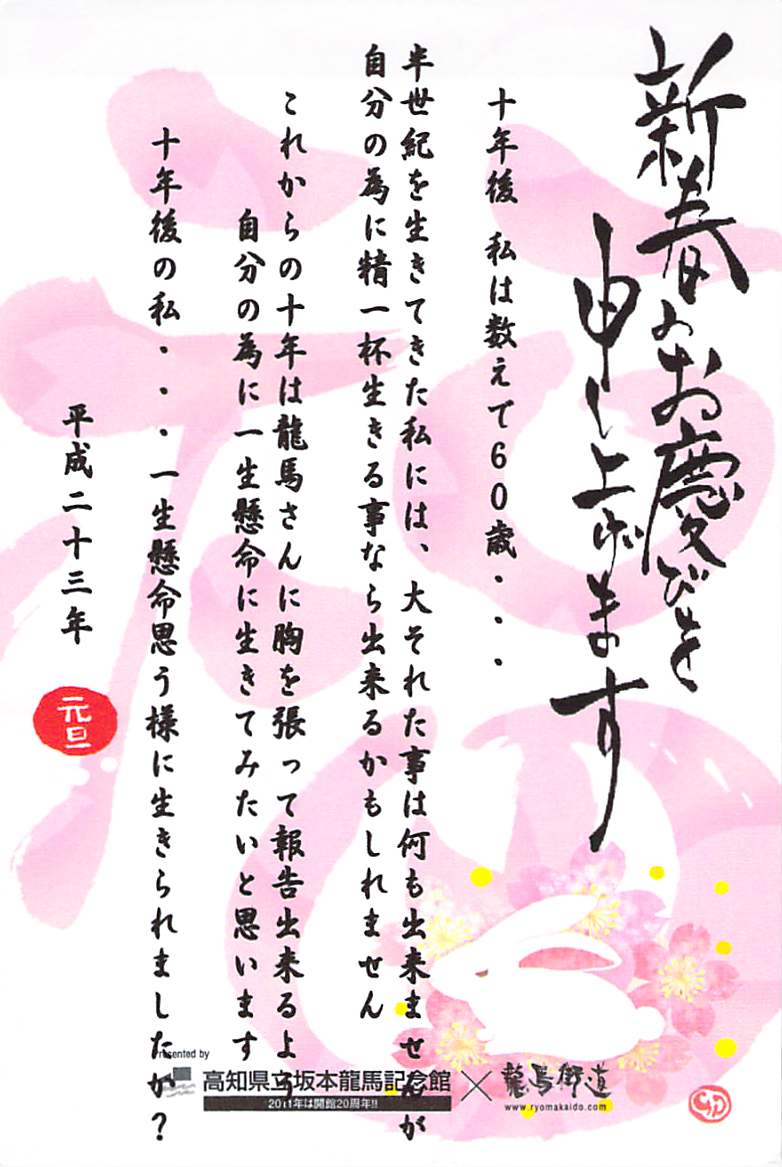 新春のお慶びを
申し上げます
十年後　私は数えで６０歳・・・
半世紀を生きてきた私には、大それた事は何も出来ませんが
自分の為に精一杯生きる事なら出来るかもしれません
これからの十年は龍馬さんに胸を張って報告出来るよう
自分の為に一生懸命に生きてみたいと思います
十年後の私・・・一生懸命思う様に生きられましたか？
平成二十三年
元旦
Presented by
高知県立坂本龍馬記念館×龍馬街道
2011年は開館20周年!!
www.ryomakaido.com